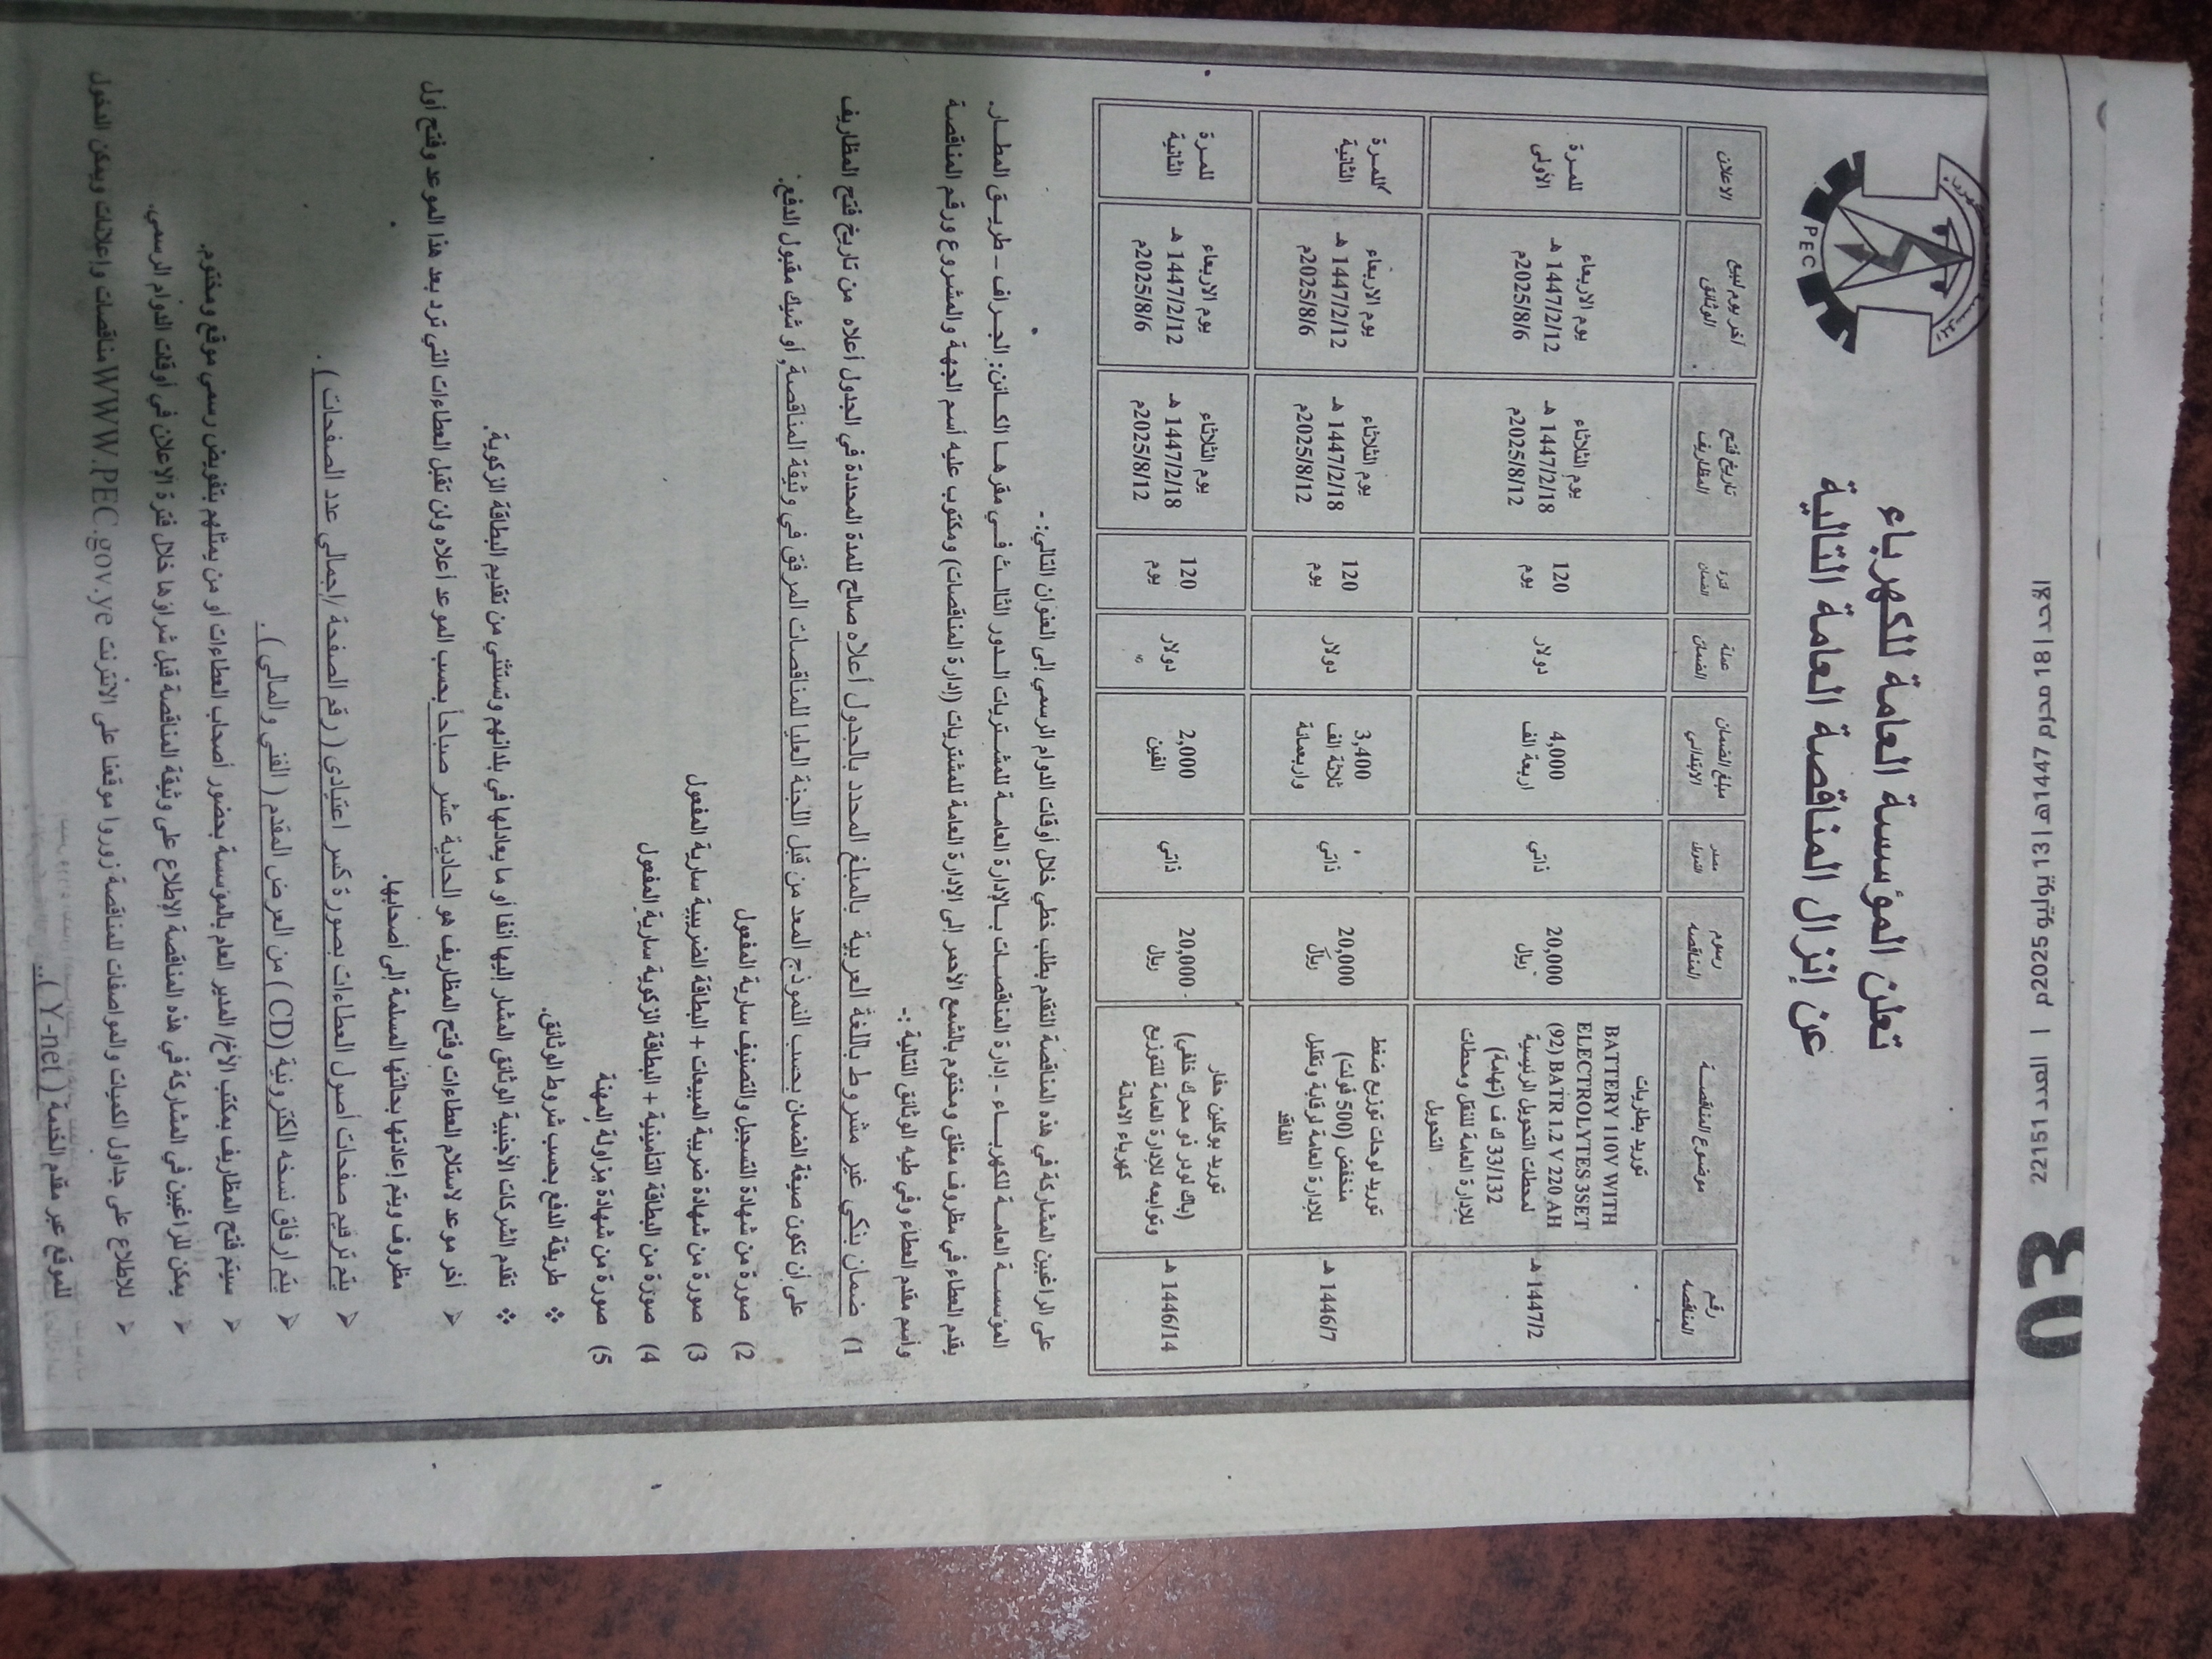 03
الأحد | 18 محرم 1447هـ | 13 يوليو 2025م | العدد 22151
PEC
تعلن المؤسسة العامة للكهرباء
عن إنزال المناقصة العامة التالية
رقم المناقصة | موضوع المناقصة | رسوم المناقصة | مصدر التمويل | مبلغ الضمان الابتدائي | عملة الضمان | فترة الضمان | تاريخ فتح المظاريف | آخر يوم لبيع الوثائق | الاعلان
1447/2 هـ | توريد بطاريات BATTERY 110V WITH ELECTROLYTES 3SET (92) BATR 1.2 V 220 AH لمحطات التحويل الرئيسية 33/132 ك ف (تهامة) للإدارة العامة للنقل ومحطات التحويل | 20,000 ريال | ذاتي | 4,000 اربعة الف | دولار | 120 يوم | يوم الثلاثاء 1447/2/18 هـ 2025/8/12م | يوم الاربعاء 1447/2/12 هـ 2025/8/6م | للمرة الأولى
1446/7 هـ | توريد لوحات توزيع ضغط منخفض (500 فولت) للإدارة العامة لرقابة وتقليل الفاقد | 20,000 ريال | ذاتي | 3,400 ثلاثة الف واربعمائة | دولار | 120 يوم | يوم الثلاثاء 1447/2/18 هـ 2025/8/12م | يوم الاربعاء 1447/2/12 هـ 2025/8/6م | للمرة الثانية
1446/14 هـ | توريد بوكلين حفار (باك لودر ذو محرك خلفي) وتوابعه للإدارة العامة للتوزيع كهرباء الامانة | 20,000 ريال | ذاتي | 2,000 الفين | دولار | 120 يوم | يوم الثلاثاء 1447/2/18 هـ 2025/8/12م | يوم الاربعاء 1447/2/12 هـ 2025/8/6م | للمرة الثانية
على الراغبين المشاركة في هذه المناقصة التقدم بطلب خطي خلال أوقات الدوام الرسمي إلى العنوان التالي:-
المؤسسة العامة للكهرباء - إدارة المناقصات بالإدارة العامة للمشتريات الدور الثالث في مقرها الكائن: الجراف – طريق المطار.
يقدم العطاء في مظروف مغلق ومختوم بالشمع الأحمر إلى الإدارة العامة للمشتريات (إدارة المناقصات) ومكتوب عليه أسم الجهة والمشروع ورقم المناقصة
وأسم مقدم العطاء وفي طيه الوثائق التالية :-
1) ضمان بنكي غير مشروط باللغة العربية بالمبلغ المحدد بالجدول أعلاه صالح للمدة المحددة في الجدول أعلاه من تاريخ فتح المظاريف
على أن تكون صيغة الضمان بحسب النموذج المعد من قبل اللجنة العليا للمناقصات المرفق في وثيقة المناقصة, أو شيك مقبول الدفع.
2) صورة من شهادة التسجيل والتصنيف سارية المفعول
3) صورة من شهادة ضريبة المبيعات + البطاقة الضريبية سارية المفعول
4) صورة من البطاقة التأمينية + البطاقة الزكوية سارية المفعول
5) صورة من شهادة مزاولة المهنة
❖ طريقة الدفع بحسب شروط الوثائق.
❖ تقدم الشركات الأجنبية الوثائق المشار إليها أنفا أو ما يعادلها في بلدانهم وتستثنى من تقديم البطاقة الزكوية.
➢ أخر موعد لاستلام العطاءات وفتح المظاريف هو الحادية عشر صباحاً بحسب الموعد أعلاه ولن تقبل العطاءات التي ترد بعد هذا الموعد وفتح أول
مظروف ويتم إعادتها بحالتها المسلمة إلى أصحابها.
➢ يتم ترقيم صفحات أصول العطاءات بصورة كسر اعتيادي ( رقم الصفحة /إجمالي عدد الصفحات ) .
➢ يتم ارفاق نسخه الكترونية (CD ) من العرض المقدم ( الفني والمالي ) .
➢ سيتم فتح المظاريف بمكتب الأخ/ المدير العام بالمؤسسة بحضور أصحاب العطاءات أو من يمثلهم بتفويض رسمي موقع ومختوم.
➢ يمكن للراغبين في المشاركة في هذه المناقصة الإطلاع على وثيقة المناقصة قبل شراؤها خلال فترة الإعلان في أوقات الدوام الرسمي.
➢ للإطلاع على جداول الكميات والمواصفات للمناقصة زوروا موقعنا على الانترنت WWW.PEC.gov.ye مناقصات وإعلانات ويمكن الدخول
للموقع عبر مقدم الخدمة ( Y-net )..